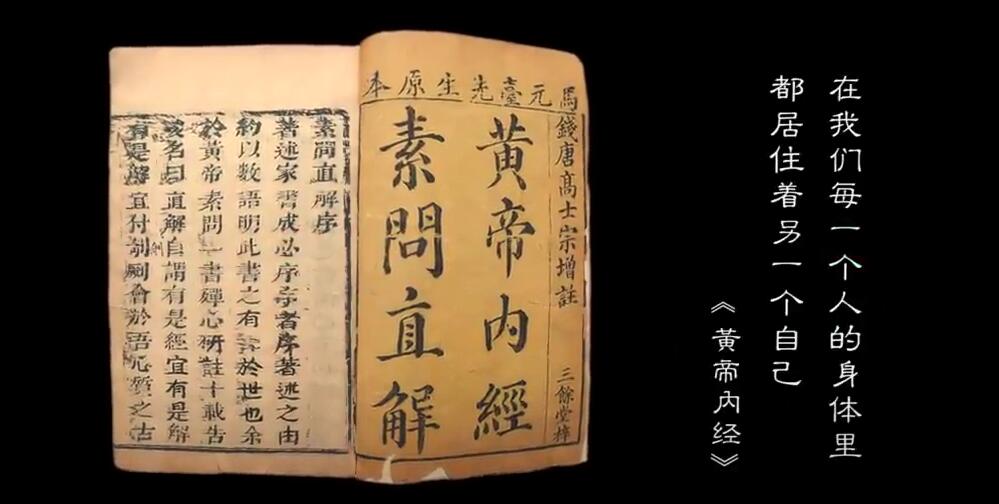 在我们每一个人的身体里
都居住着另一个自己
《黃帝內经》
馬元臺先生原本
錢唐高士宗增註
三餘堂梓
黃帝內經
素問直解
素問直解序
著述家書成必序序者序著述之由
約以數語明此書之有於世也余
於黃帝素問一書殫心研註十載告
竣名曰直解自謂有是經宜有是解
有是解宜付剞劂會於質之古